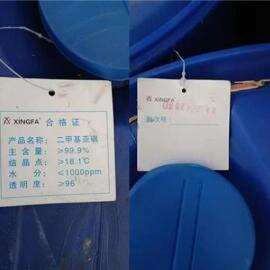 XINGFA 合格证
产品名称：二甲基亚砜
主含量：≥99.9%
结晶点：≥18.1℃
水 分：<1000ppm
透明度：≥96
XINGFA